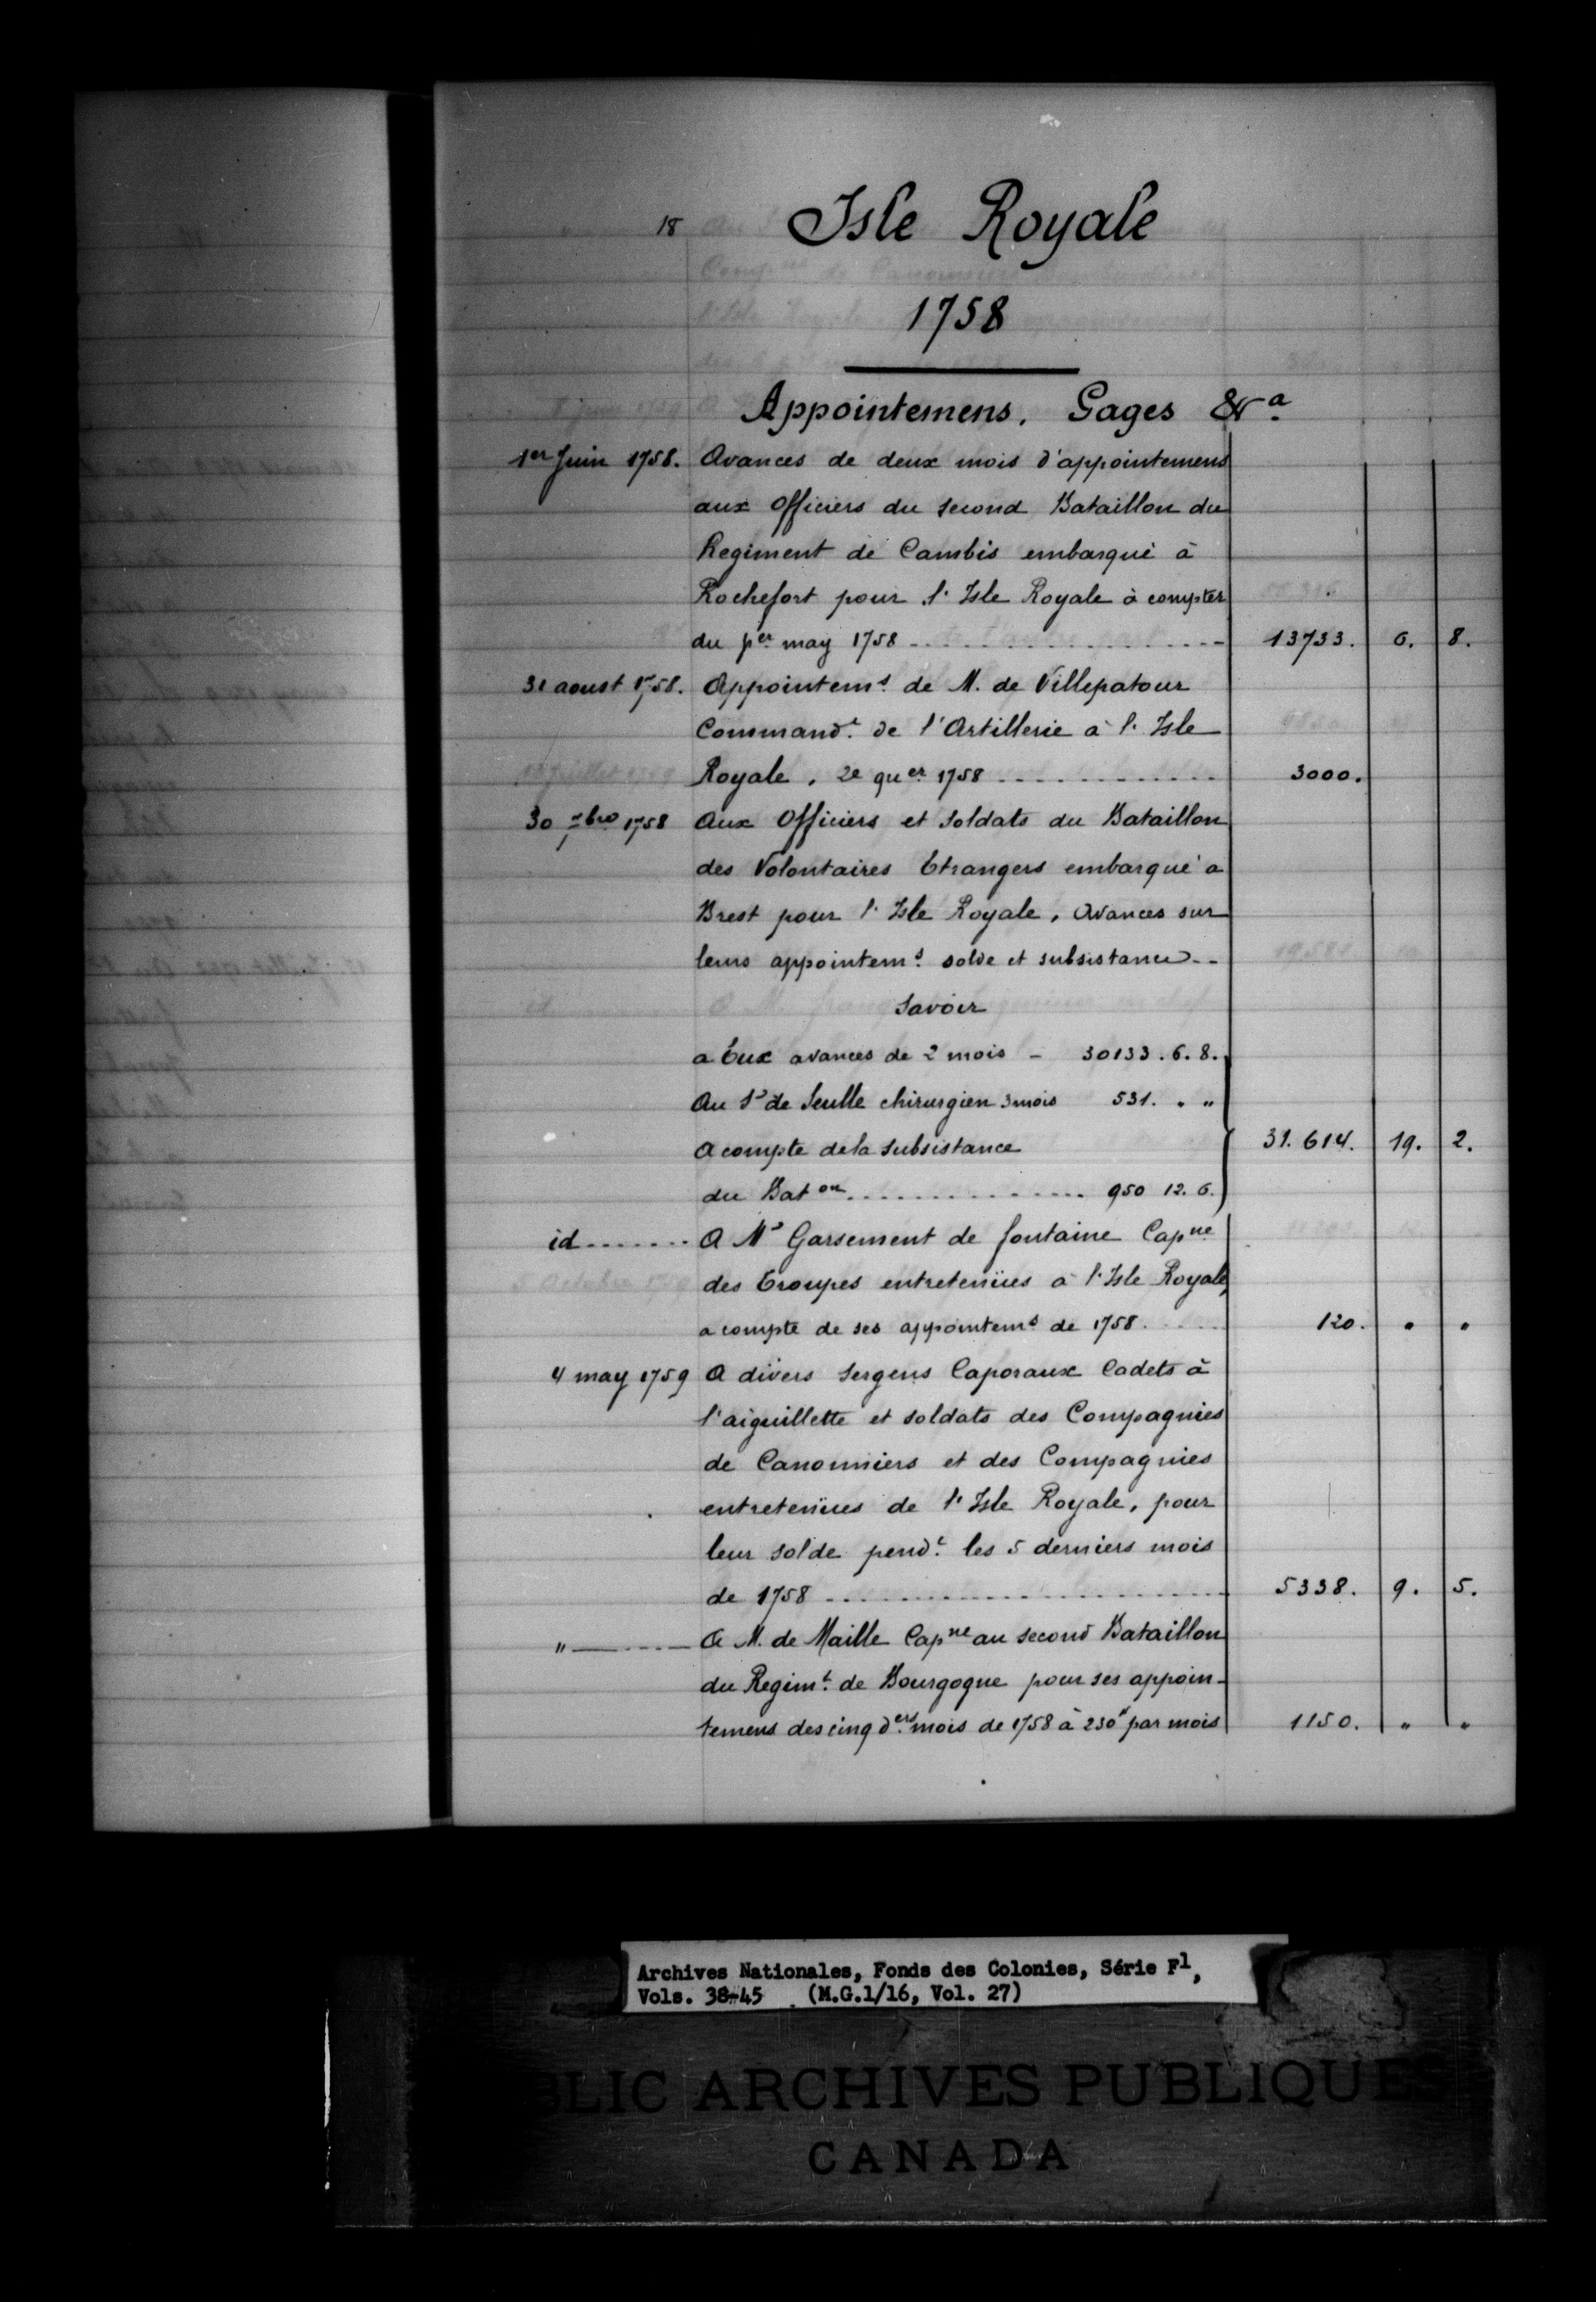 18 Isle Royale
1758
Appointemens. Gages &a
1er Juin 1758. Avances de deux mois d'appointemens
aux Officiers du second Bataillon du
Regiment de Cambis embarqué à
Rochefort pour l'Isle Royale à compter
du per may 1758 13733. 6. 8.
31 aoust 1758. Appointems de M. de Villepatour
Commandt de l'Artillerie à l'Isle
Royale, 2e quer 1758 3000.
30 7bre 1758 Aux Officiers et soldats du Bataillon
des Volontaires Etrangers embarqué a
Brest pour l'Isle Royale, Avances sur
leurs appointems solde et subsistance
Savoir
a Eux avances de 2 mois - 30133. 6. 8.
Au Sr de Seulle chirurgien 3 mois 531. " "
A compte de la subsistance 31.614. 19. 2.
du Baton 950 12. 6.
id A Mr Garsement de fontaine Capne
des Troupes entretenües à l'Isle Royale,
a compte de ses appointems de 1758 120. " "
4 may 1759 A divers Sergens Caporaux Cadets à
l'aiguillette et soldats des Compagnies
de Canonniers et des Compagnies
entretenües de l'Isle Royale, pour
leur solde pendt les 5 derniers mois
de 1758 5338. 9. 5.
" A M. de Maille Capne au second Bataillon
du Regimt de Bourgogne pour ses appoin-
temens des cinq ders mois de 1758 à 230# par mois 1150. " "
Archives Nationales, Fonds des Colonies, Série F1,
Vols. 38-45 (M.G.1/16, Vol. 27)
BLIC ARCHIVES PUBLIQUES
CANADA